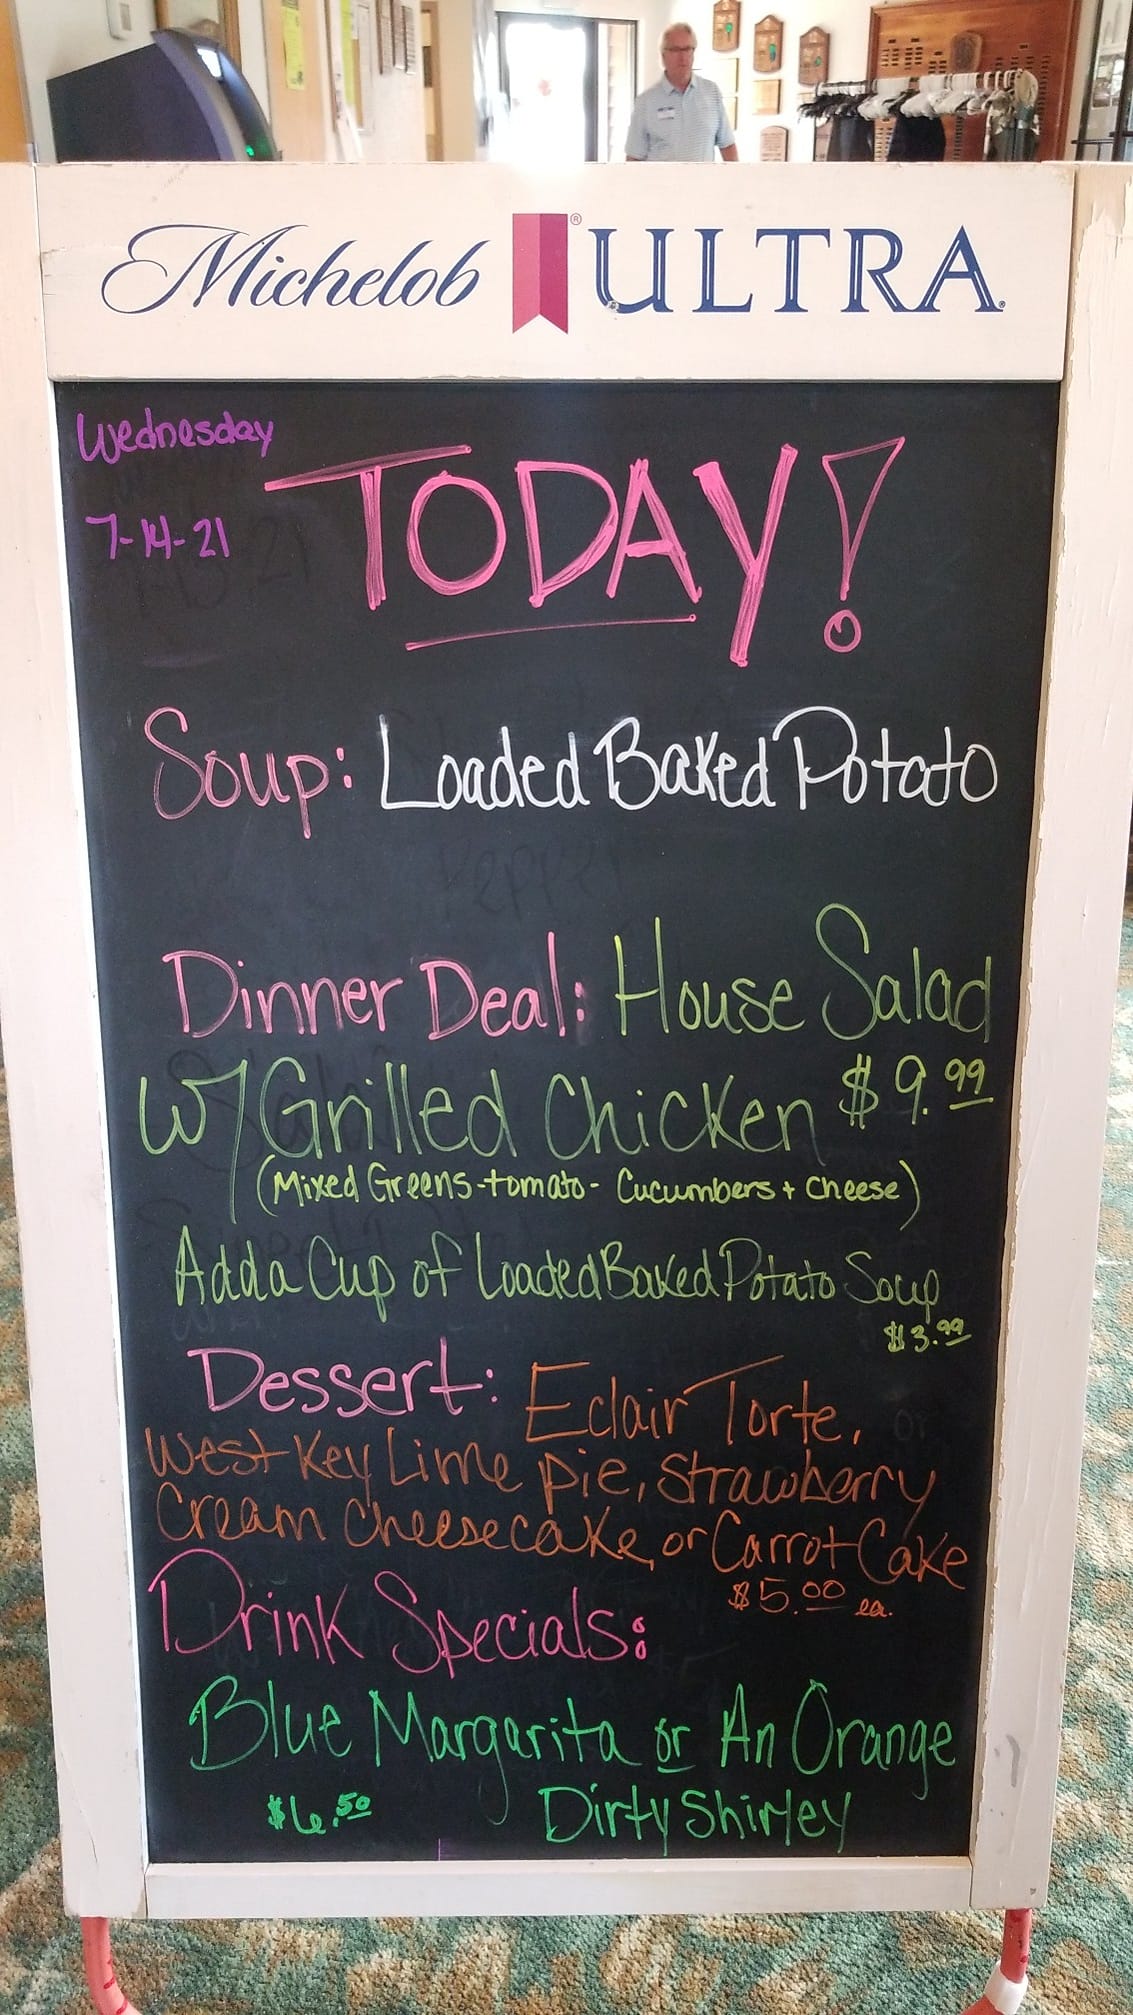 Michelob ® ULTRA
Wednesday
7-14-21
TODAY!
Soup: Loaded Baked Potato
Dinner Deal: House Salad
w/ Grilled Chicken $9.99
(Mixed Greens-tomato- Cucumbers + cheese)
Add a Cup of Loaded Baked Potato Soup
$3.99
Dessert: Eclair Torte,
West Key Lime pie, Strawberry
Cream Cheesecake, or Carrot Cake
$5.00 ea.
Drink Specials:
Blue Margarita or An Orange
$6.50 Dirty Shirley